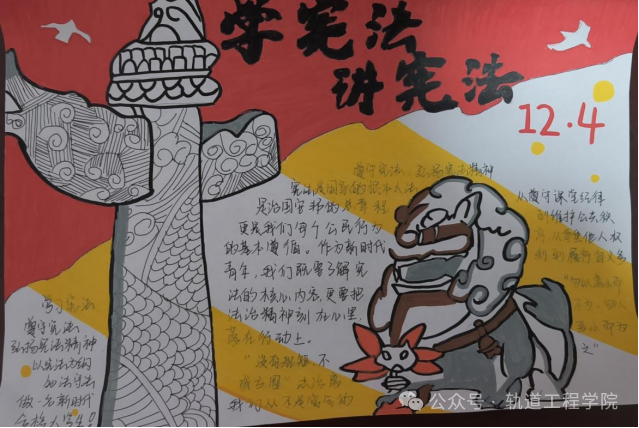 学宪法
讲宪法
12.4
遵守宪法、弘扬宪法精神
宪法是国家的根本大法
是治国安邦的总章程
更是我们每个公民行为
的基本遵循。作为新时代
青年，我们既要了解宪
法的核心内容，更要把
法治精神刻在心里
落在行动上。
"没有规矩，不
成方圆"法治离
我们从不是空的
从遵守课堂纪律
到维护公共秩
序，从尊重他人权
利到履行自义务
"勿以善小而
不为，勿以
恶小而为
之"
学习宪法
遵守宪法
弘扬宪法精神
做一名新时代
合格大学生！
公众号·轨道工程学院